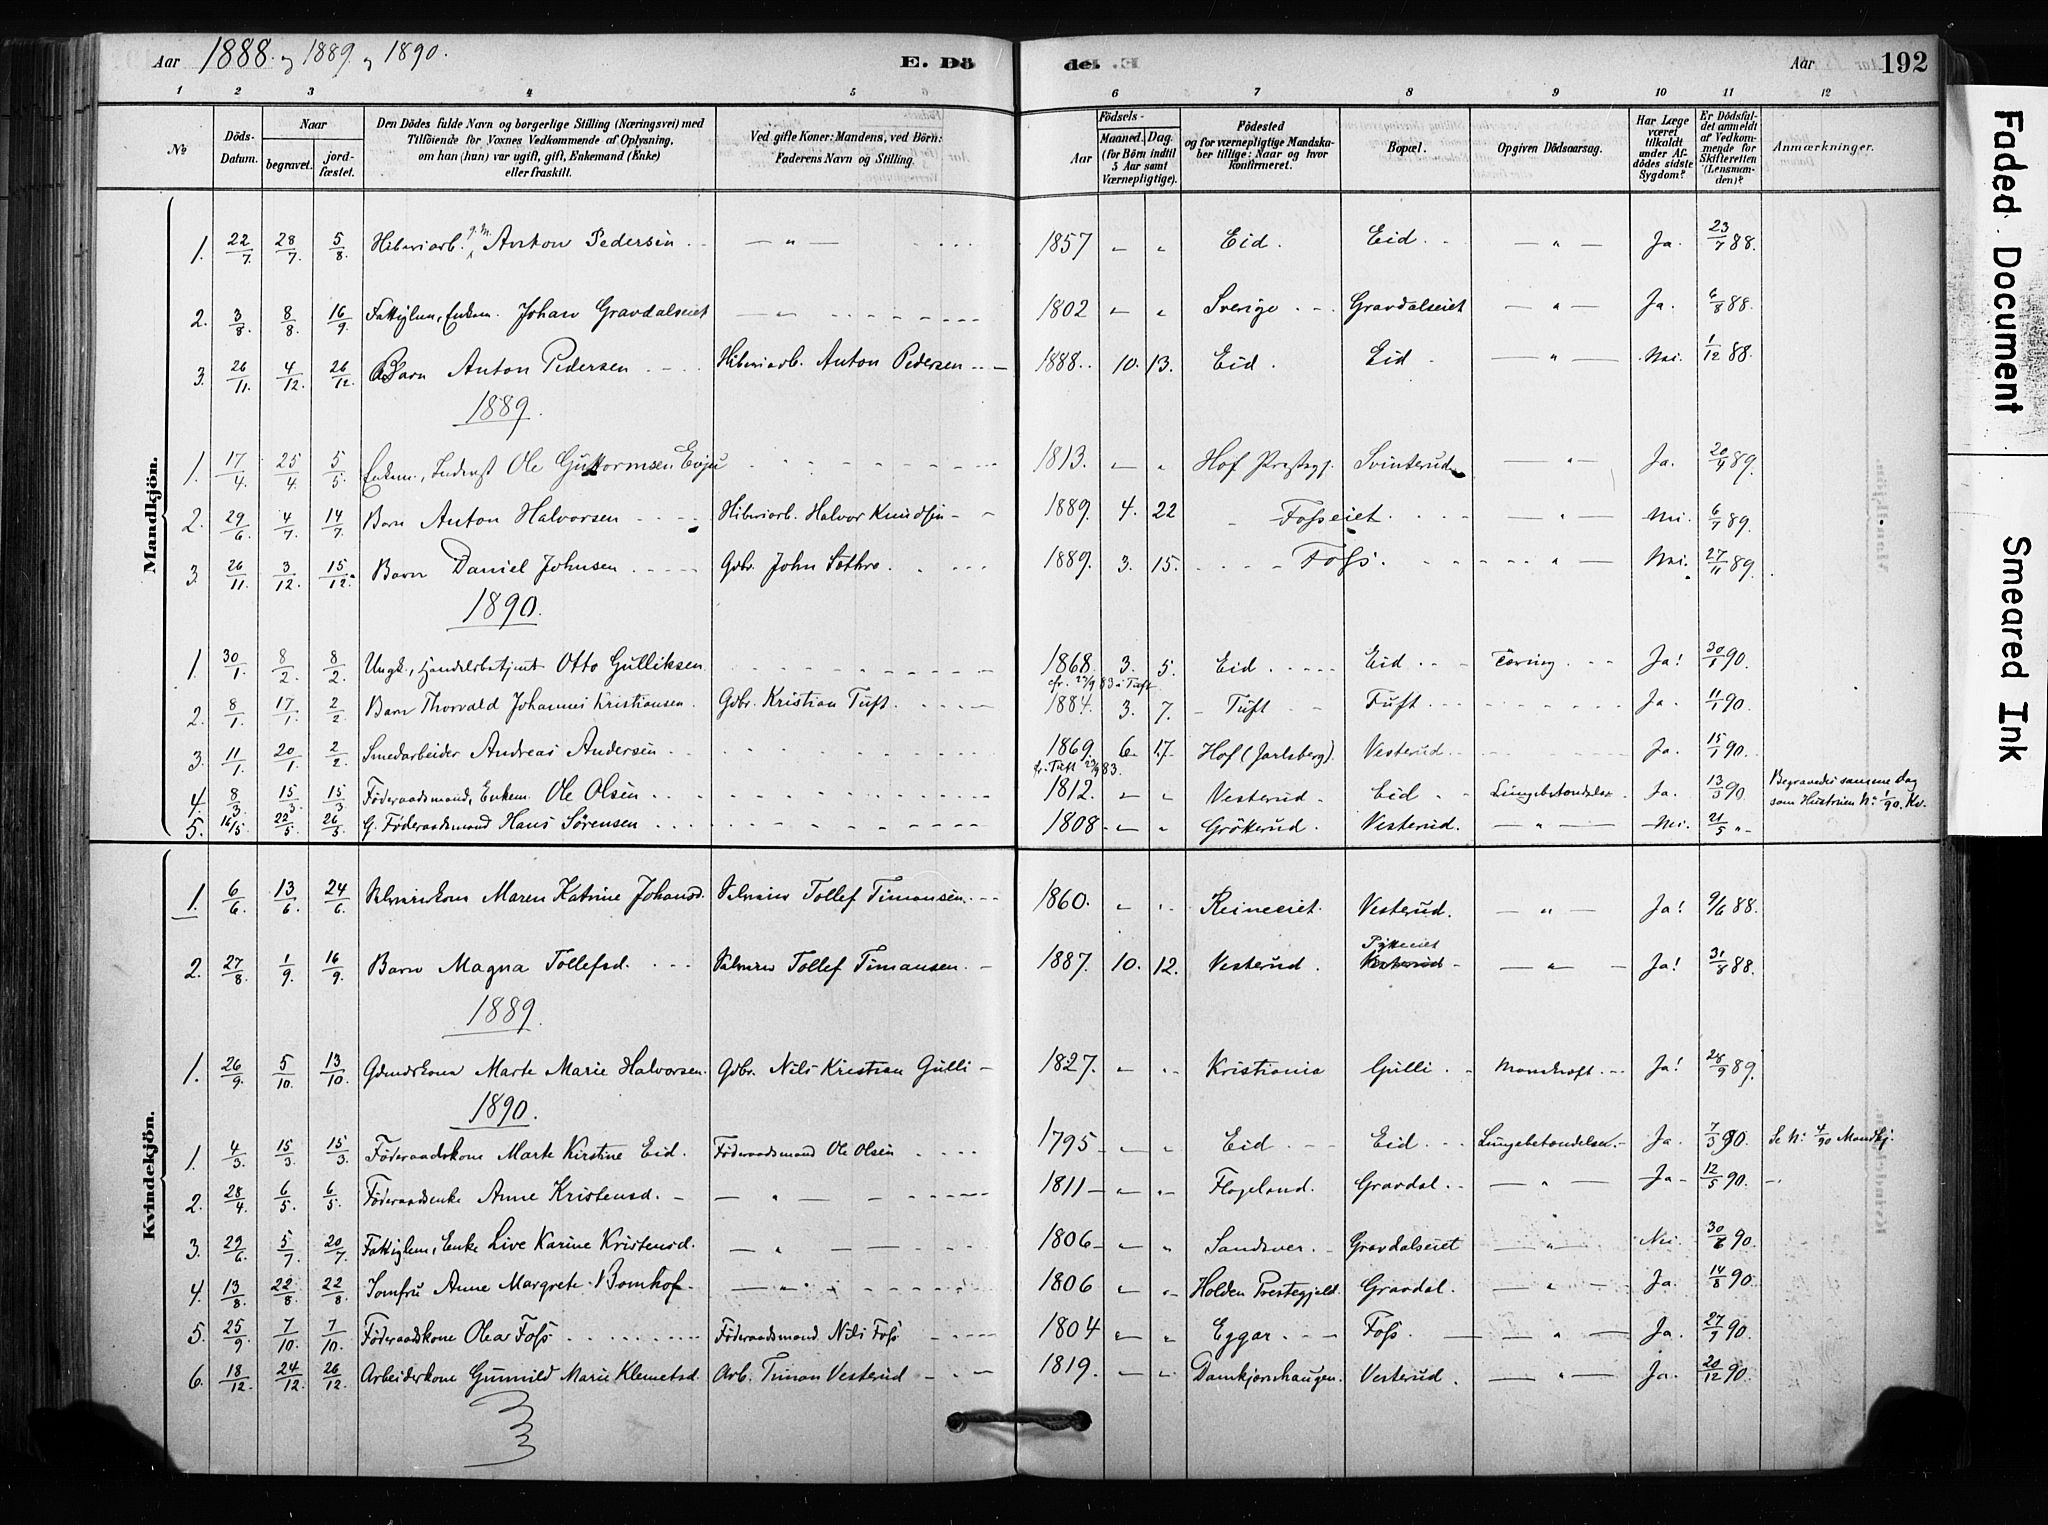 Aar 1888. og 1889. og 1890. E. Dö de. Aar 192
1 2 3 4 5 6 7 8 9 10 11 12
No
Döds-Datum.
Naar
begravet.
jord-fæstet.
Den Dödes fulde Navn og borgerlige Stilling (Næringsvei) med
Tilföiende for Voxnes Vedkommende af Oplysning,
om han (hun) var ugift, gift, Enkemand (Enke)
eller fraskilt.
Ved gifte Koner: Mandens, ved Börn:
Faderens Navn og Stilling.
Födsels-
Aar
Maaned. Dag.
(for Börn indtil
5 Aar samt
Værnepligtige).
Födested
og for værnepligtige Mandska-
ber tillige: Naar og hvor
konfirmeret.
Bopæl.
Opgiven Dödsaarsag.
Har Læge
været
tilkaldt
under Af-
dödes sidste
Sygdom?
Er Dödsfal-
det anmeldt
af Vedkom-
mende for
Skifteretten
(Lensman-
den)?
Anmærkninger.
Mandkjön.
1. 22/7 28/7 5/8 g.m. Anton Pedersen — " — 1857 " " Eid. Eid. — " — Ja. 23/7 88.
2. 3/8 8/8 16/9 Fattiglem, Enkem. Johan Gravdalseiet — " — 1802 " " Sverige Gravdalseiet — " — Ja. 6/8 88.
3. 26/11. 4/12. 26/12. Barn Anton Pedersen Anton Pedersen 1888. 10. 13. Eid. Eid — " — Nei. 1/12 88.
1889.
1. 17/4. 25/4. 5/5. Enkem., Ole Guttormsen Evju 1813. " " Hof Prestgj. Svinterud — " — Ja. 20/4 89.
2. 29/6 4/7 14/7. Barn Anton Halvorsen Halvor Knudsen 1889. 4. 22 Fosseiet — " — Nei. 6/7 89.
3. 26/11. 3/12. 15/12. Barn Daniel Johnsen Gdbr. John Sothre 1889. 3. 15. Foss. " — Nei. 27/11 89.
1890.
1. 30/1 8/2 8/2 Ungk., Handelsbetjent Otto Gulliksen 1868. 3. 5. Eid Eid Tæring Ja! 30/1 90.
83 i Tuft
2. 8/1. 17/1. 2/2 Barn Thorvald Johannes Kristiansen. Gdbr. Kristian Tuft. 1884. 3. 7. Tuft Tuft. Ja. 11/1 90.
3. 11/1. 20/1. 2/2 Smedarbeider Andreas Andersen 1869. 6. 17. Hof (Jarlsberg) Vesterud Ja. 15/1 90.
Tuft 83.
4. 8/3 15/3 15/3 Föderaadsmand, Enkem. Ole Olsen 1812. " " Vesterud. Eid Lungebetændelse Ja. 13/3 90 Begravedes samme Dag
som Hustruen No 1/90. Kv.
5. 16/5 22/5 26/5 G. Föderaadsmand Hans Sörensen 1808 " " Grökerud. Vesterud. — " — Nei. 21/5 "
Kvindekjön.
1. 6/6 13/6 24/6. Maren Katrine Johansd. Tollef Timansen. 1860. " " Reineeiet. Vesterud. — " — Ja! 9/6 88.
2. 27/8 1/9. 16/9. Barn Magna Tollefsd. Tollef Timansen. 1887. 10. 12. Vesterud. Vesterud — " — Ja! 31/8 88.
1889.
1. 26/9. 5/10. 13/10. Marte Marie Halvorsen. Gdbr. Nils Kristian Gulli 1827. " " Kristiania Gulli Ja! 28/9 89.
1890.
1. 4/3. 15/3. 15/3. Föderaadskone Marte Kirstine Eid. Föderaadsmand Ole Olsen 1795 " " Eid Eid Lungebetændelse. Ja. 7/3 90. Se No 4/90 Mandkj.
2. 28/4 6/5. 6/5. Föderaadsenke Anne Kristensd. — " — 1811 " " Flageland. Gravdal. — " — Ja 12/5 90.
3. 29/6. 5/7 20/7. Fattiglem, Enke Live Karine Kristensd. — " — 1806 " " Sandsver. Gravdalseiet " Nei. 30/6 90.
4. 13/8. 22/8. 22/8. Jomfru Anne Margrete Bomhof — " — 1806 " " Holden Prestegjeld. Gravdal. — " — Ja. 14/8 90.
5. 25/9 7/10. 7/10. Föderaadskone Olea Foss Föderaadsmand Nils Foss 1804 " " Eggar Foss. — " — Ja. 27/9 90.
6. 18/12. 24/12. 26/12. Arbeiderkone Gunnild Marie Klemetsd. Arb. Timan Vesterud 1819. " " Damkjærshaugen. Vesterud. — " — Ja. 20/12 90.
Faded Document
Smeared Ink